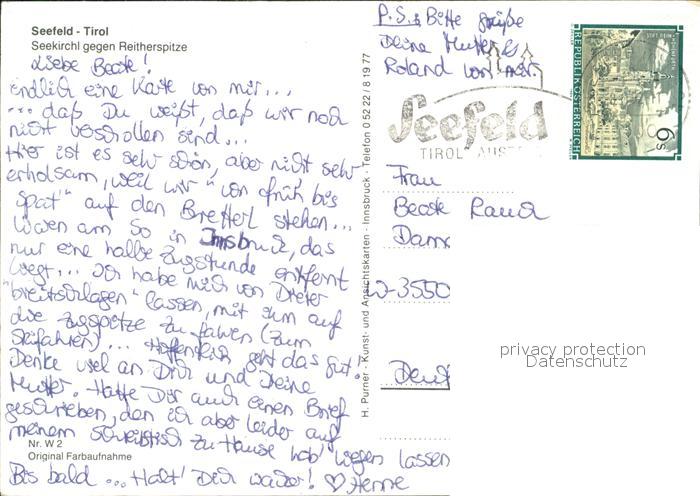 Seefeld - Tirol
Seekirchl gegen Reitherspitze
Liebe Beate!
endlich eine Karte von mir...
... daß Du weißt, daß wir noch
nicht verschollen sind...
Hier ist es sehr schön, aber nicht sehr
erholsam, weil wir "von früh bis
spät" auf den Bretterl stehen...
Waren am So in Innsbruck, das
nur eine halbe Zugstunde entfernt
liegt... Ich habe mich von Dieter
"breitschlagen" lassen, mit ihm auf
die Zugspitze zu fahren (zum
Skifahren)... Hoffentlich geht das gut!
Denke viel an Dich und Deine
Mutter. Hatte Dir auch einen Brief
geschrieben, den ich aber leider auf
meinem Schreibtisch zu Hause hab' liegen lassen
Nr. W 2
Original Farbaufnahme
Bis bald ... Halt' Dich wacker! ♡
H. Purner - Kunst- und Ansichtskarten - Innsbruck - Telefon 0 52 22 / 8 19 77
P.S.: Bitte grüße
Deine Mutter &
Roland von mir.
Seefeld
TIROL AUST
REPUBLIK ÖSTERREICH
S 6
Frau
Beate Rauch
Damm
W-3550
Deut
privacy protection
Datenschutz